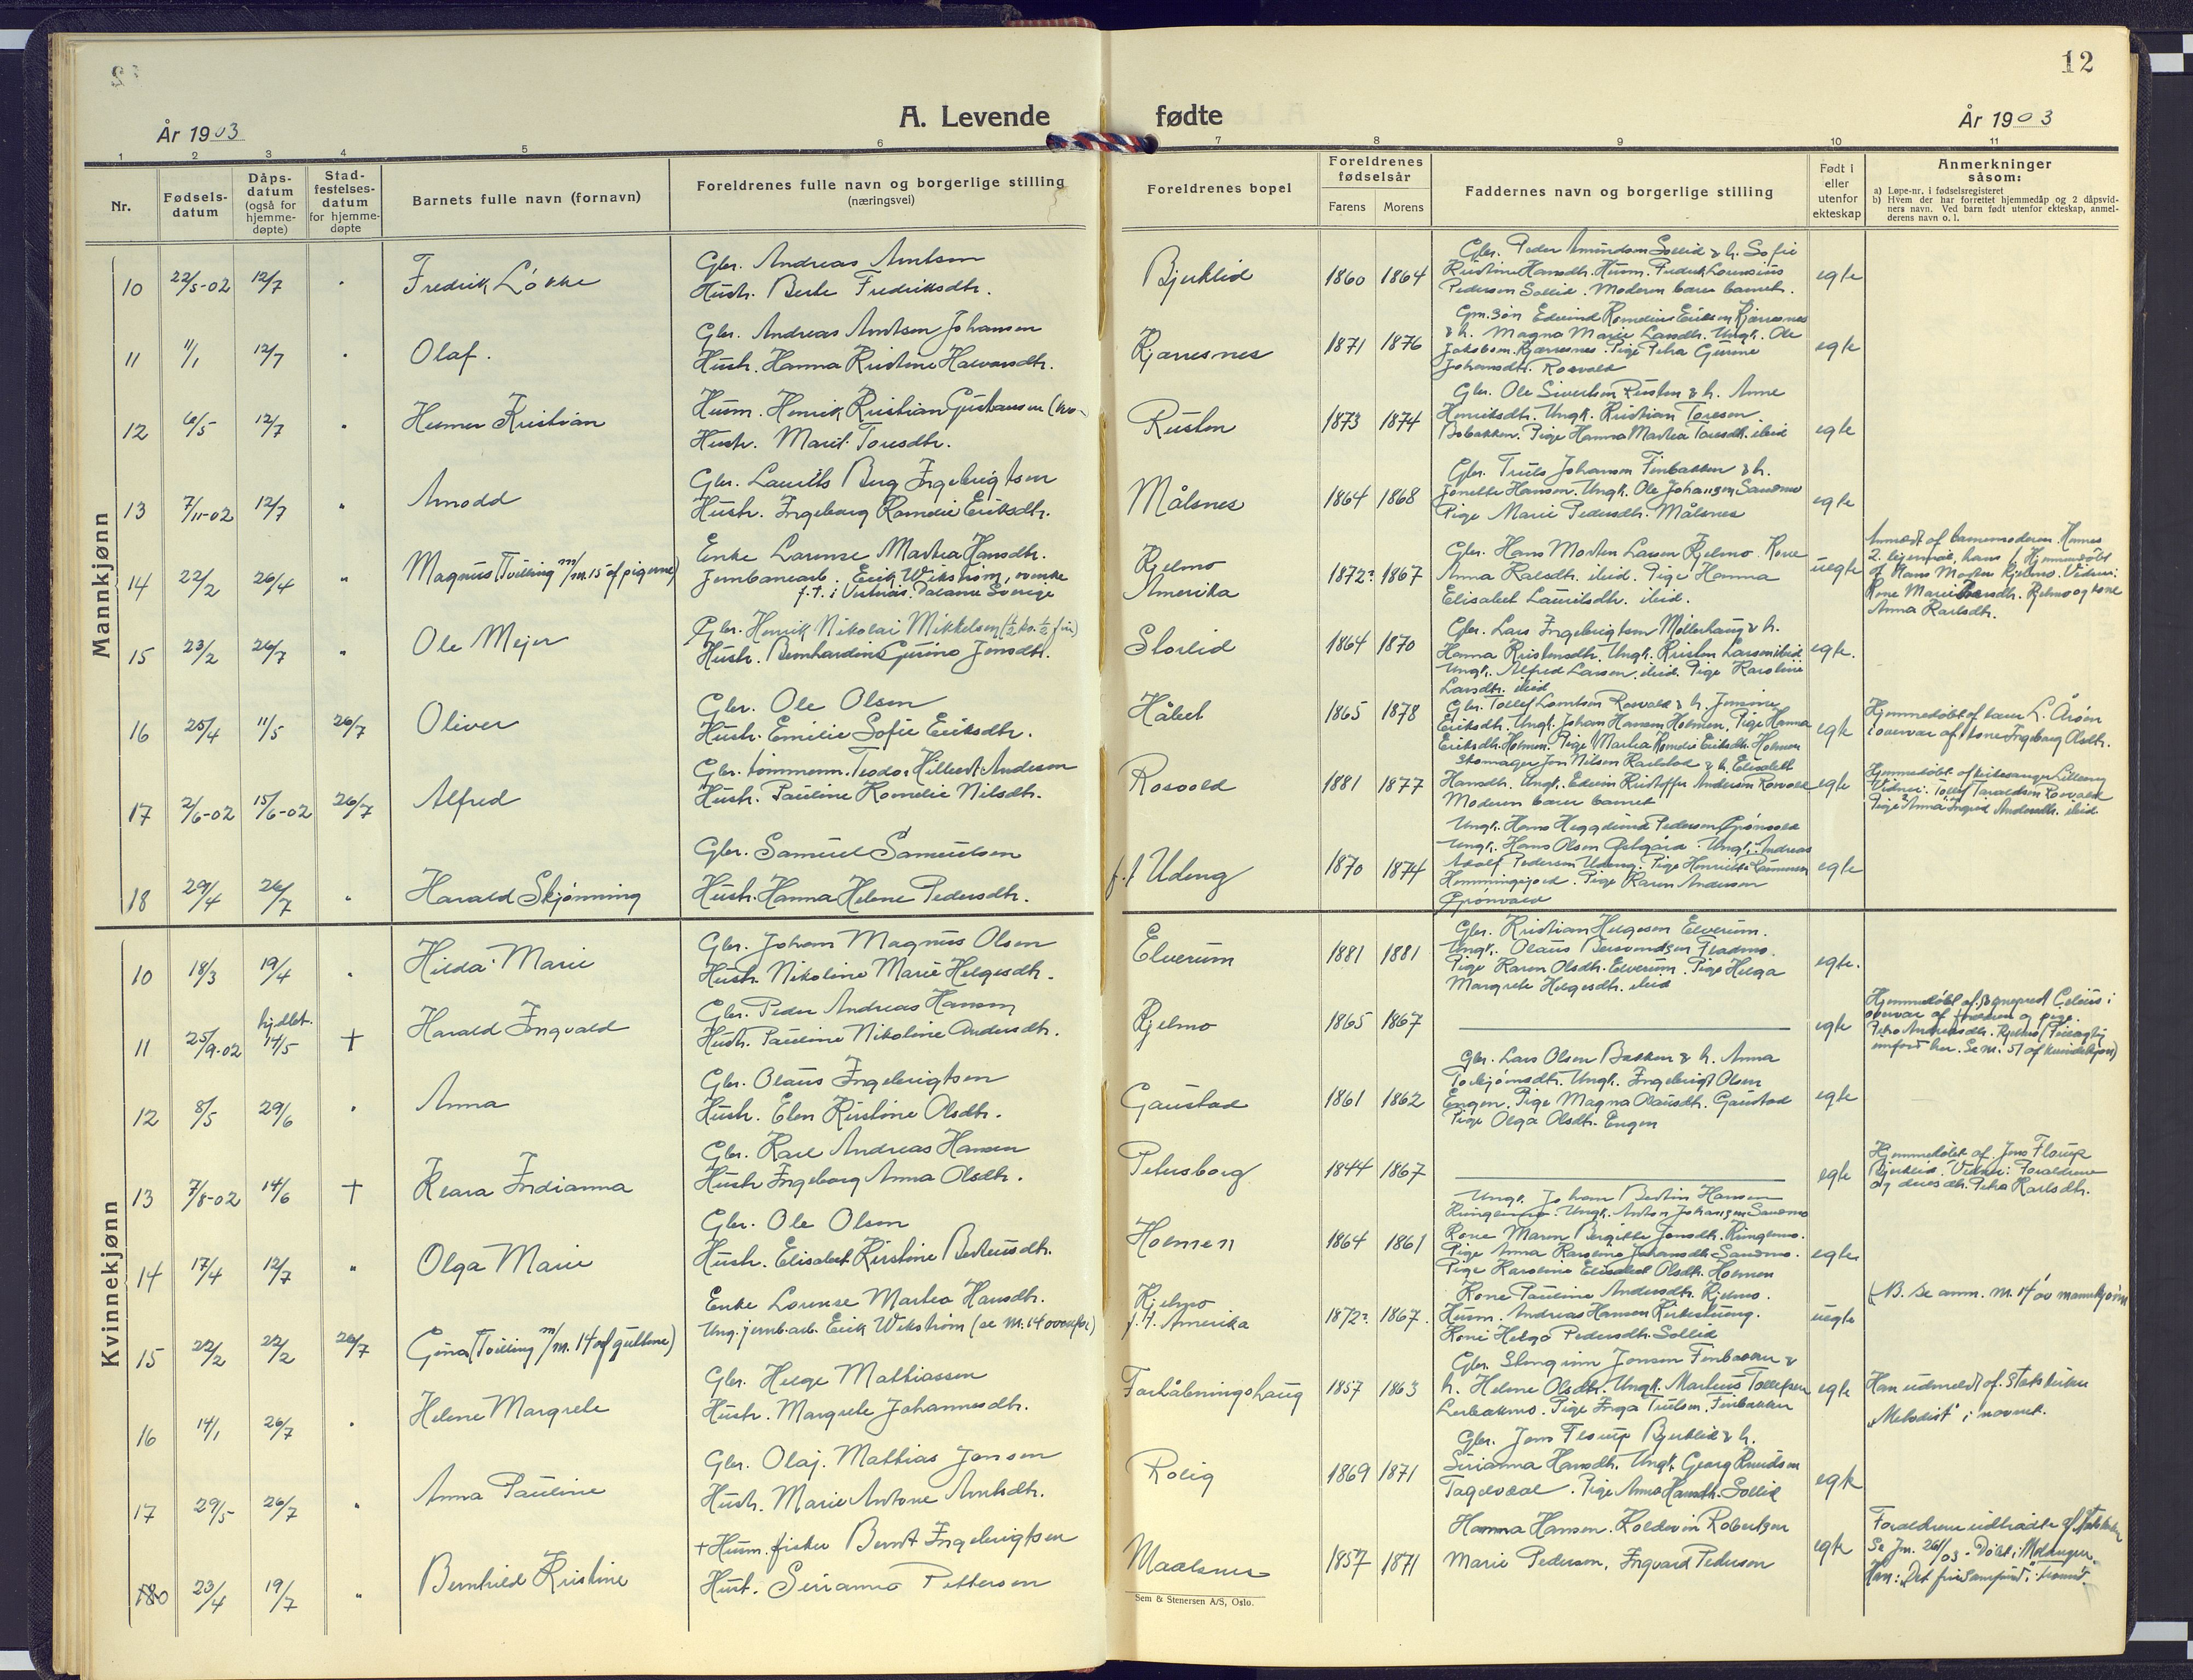 12
A. Levende fødte
År 1903
År 1903
1 2 3 4 5 6 7 8 9 10 11
Nr.
Fødsels-
datum
Dåps-
datum
(også for
hjemme-
døpte)
Stad-
festelses-
datum
for hjemme-
døpte
Barnets fulle navn (fornavn)
Foreldrenes fulle navn og borgerlige stilling
(næringsvei)
Foreldrenes bopel
Foreldrenes
fødselsår
Farens
Morens
Faddernes navn og borgerlige stilling
Født i
eller
utenfor
ekteskap
Anmerkninger
såsom:
a) Løpe-nr. i fødselsregisteret
b) Hvem der har forrettet hjemmedåp og 2 dåpsvid-
ners navn. Ved barn født utenfor ekteskap, anmel-
derens navn o. l.
Mannkjønn
10 22/5-02 12/7 Fredrik Løkke
Gbr. Andreas Arntsen
Hustr. Berte Fredriksdtr.
Bjerklid 1860 1864
Gbr. Peder Amundsen Sollid & h. Sofie
Kristine Hansdtr. Husm. Fredrik Lorensius
Pedersen Sollid. Moderen barer barnet.
egte
11 11/1 12/7 Olaf.
Gbr. Andreas Arntsen Johansen
Hustr. Hanna Kristine Halvarsdtr.
Kjærresnes 1871 1876
Gm.søn Edvind Romelius Eriksen Kjærresnes
& h. Magna Marie Larsdtr. Ungk. Ole
Jakobsen Kjærresnes. Pige Petra Gurine
Johansdtr. Rosvold
egte
12 6/5 12/7 Helmer Kristian
Husm. Henrik Kristian Gustavsen (kv.
Hustr. Marit Toresdtr.
Rusten 1873 1874
Gbr. Ole Sivertsen Rusten & h. Anne
Henriksdtr. Ungk. Kristian Toresen
Bobakken. Pige Hanna Martea Toresdtr. ibid
egte
13 7/11-02 12/7 Arnodd
Gbr. Laurits Berg Ingebrigtsen
Hustr. Ingeborg Romelie Eriksdtr.
Målsnes 1864 1868
Gbr. Truls Johansen Finbakken & h.
Jonette Hansen. Ungk. Ole Johansen Sandmo
Pige Marie Pedersdtr. Målsnes
egte
14 22/2 26/4 Magnus (Tvilling m/nr. 15 af pigerne)
Enke Lorense Martea Hansdtr.
Jernbanearb. Erik Wikstrøm, svenke
f.t. i Sverige
Kjelmo
Amerika
1872? 1867
Gbr. Hans Morten Larsen Kjelmo. Kone
Anna Karlsdtr. ibid. Pige Hanna
Elisabet Lauritsdtr. ibid.
uegte
Anmeldt af barnemoderen. Hennes
2. leiermål, hans 1. Hjemmedøbt
af Hans Morten Kjelmo. Vidner:
Kone Marie Kjelmo og kone
Anna Karlsdtr.
15 23/2 26/7 Ole Mejer
Gbr. Henrik Nikolai Mikkelsen (½ kv. ½ fin)
Hustr. Bernhardine Gurine Jensdtr.
Storlid 1864 1870
Gbr. Lars Ingebrigtsen Møllerhaug & h.
Hanna Kristensdtr. Ungk. Kristen Larsen ibid
Ungk. Alfred Larsen, ibid. Pige Karoline
Larsdtr. ibid
egte.
16 25/4 11/5 26/7 Oliver
Gbr. Ole Olsen
Hustr. Emilie Sofie Eriksdtr.
Håbet 1865 1878
Gbr. Tollef Rosvold & h. Jensine
Eriksdtr. Ungk. Johan Hansen Holmen, Pige Hanna
Eriksdtr. Holmen. Pige Martea Romelie Eriksdtr. Holmen
egte
Hjemmedøbt af lærer L. Årøen
i overvær af kone Ingeborg Olsdtr.
17 2/6-02 15/6-02 26/7 Alfred
Gbr. tømmerm. Teodor Hilbert Andersen
Hustr. Pauline Romelie Nilsdtr.
Rosvold 1881 1877
Skomager Jon Nilsen Karlstad & h. Elisabeth
Hansdtr. Ungk. Edvin Kristoffer Andersen Rosvold
Moderen barer barnet
egte
Hjemmedøbt af kirkesanger Lilleeng
Vidner: Tollef Taraldsen Rosvold
Pige Anna Ingrid Andersdtr. ibid.
18 29/4 26/7 Harald Skjønning
Gbr. Samuel Samuelsen
Hustr. Hanna Helene Pedersdtr.
f.t. Udeng 1870 1874
Ungk. Hans Heggelund Pedersen Grønvold
Ungk. Hans Olsen Østgård. Ungk. Andreas
Adolf Pedersen Udeng. Pige Henriette Rasmussen
Hemmingejord. Pige Karen Andersen
Grønvold
egte
Kvinnekjønn
10 18/3 19/4 Hilda Marie
Gbr. Johan Magnus Olsen
Hustr. Nikoline Marie Helgesdtr.
Elverum 1881 1881
Gbr. Kristian Helgesen Elverum.
Ungk. Olaus Bersvendsen Fladmo.
Pige Karen Olsdtr. Elverum. Pige Helga
Margrete Helgesdtr. ibid
egte.
11 25/9-02 hj.døbt. 14/5 † Harald Ingvald
Gbr. Peder Andreas Hansen
Hustr. Pauline Nikoline Andersdtr.
Kjelmo 1865 1867
egte
Hjemmedøbt af sogneprest Celius i
overvær af fadderen og pige
Petra Andreasdtr. Kjelmo (Feilagtig
innført her. Se nr. 51 af kvindekjøn)
12 8/5 29/6 Anna
Gbr. Olaus Ingebrigtsen
Hustr. Elen Kirstine Olsdtr.
Gaustad 1861 1862
Gbr. Lars Olsen Bakken & h. Anna
Torbjørnsdtr. Ungk. Ingebrigt Olsen
Engen. Pige Magna Olausdtr. Gaustad
Pige Olga Olsdtr. Engen
egte
13 7/8-02 14/6 † Klara Indianna
Gbr. Karl Andreas Hansen
Hustr. Ingeborg Anna Olsdtr.
Petersborg 1844 1867
egte
Hjemmedøbt af Jens Florup
Bjerklid. Vidner: Foraldrene
og deres dtr. Petra Karlsdtr.
14 17/4 12/7 Olga Marie
Gbr. Ole Olsen
Hustr. Elisabet Kirstine Berteusdtr.
Holmen 1864 1861
Ungk. Johan Bertin Hansen
Kongsmo. Ungk. Anton Johansen Sandmo
Kone Maren Bergitte Jonsdtr.
Pige Anna Karoline Johansdtr. Sandmo.
Pige Karoline Elisabet Olsdtr. Holmen
egte
15 22/2 22/2 26/7 Gina (Tvilling m/nr. 14 af guttene)
Enke Lorense Martea Hansdtr.
Ung. jernb.arb. Erik Wikstrøm (se nr. 14 ovenfor)
Kjelmo
f.t. Amerika
1872? 1867.
Kone Pauline Andersdtr. Kjelmo.
Husm. Andreas Hansen
Kone Helga Pedersdtr. Sollid
uegte
(NB. Se anm. nr. 14 av mannkjønn
16 14/1 26/7 Helene Margrete
Gbr. Helge Mathiassen
Hustr. Margrete Johannesdtr.
Forhåbningshaug 1857 1863
Gbr. Stengrim Jonsen Finbakken &
h. Helene Olsdtr. Ungk. Marteus Tollefsen
Lerbakmo. Pige Inga Trulsen, Finbakken
egte
Han udmeldt af statskirken
„Metodist" i navnet.
17 29/5 26/7 Anna Pauline
Gbr. Olaj. Mathias Jonsen
Hustr. Marie Antone Arntsdtr.
Rolig 1869 1871
Gbr. Jens Florup Bjerklid & h.
Sirianna Hansdtr. Ungk. Georg Knudsen
Tagelvdal. Pige Anna Hansdtr. Sollid
egte
180 23/4 19/7 Bernhild Kristine
+ Husm. fisker Bernt Ingebrigtsen
Hust. Serianna Pettersen
Maalsnes 1857 1871
Hanna Hansen. Koldevin Robertsen
Marie Pedersen, Ingvard Pedersen
egte
Foraldrene udtrådte af statskirken
Se Jnr. 261/03 - Døbt i Malangen.
Han: „Det frie samfund i Tromsø".
Sem & Stenersen A/S, Oslo.